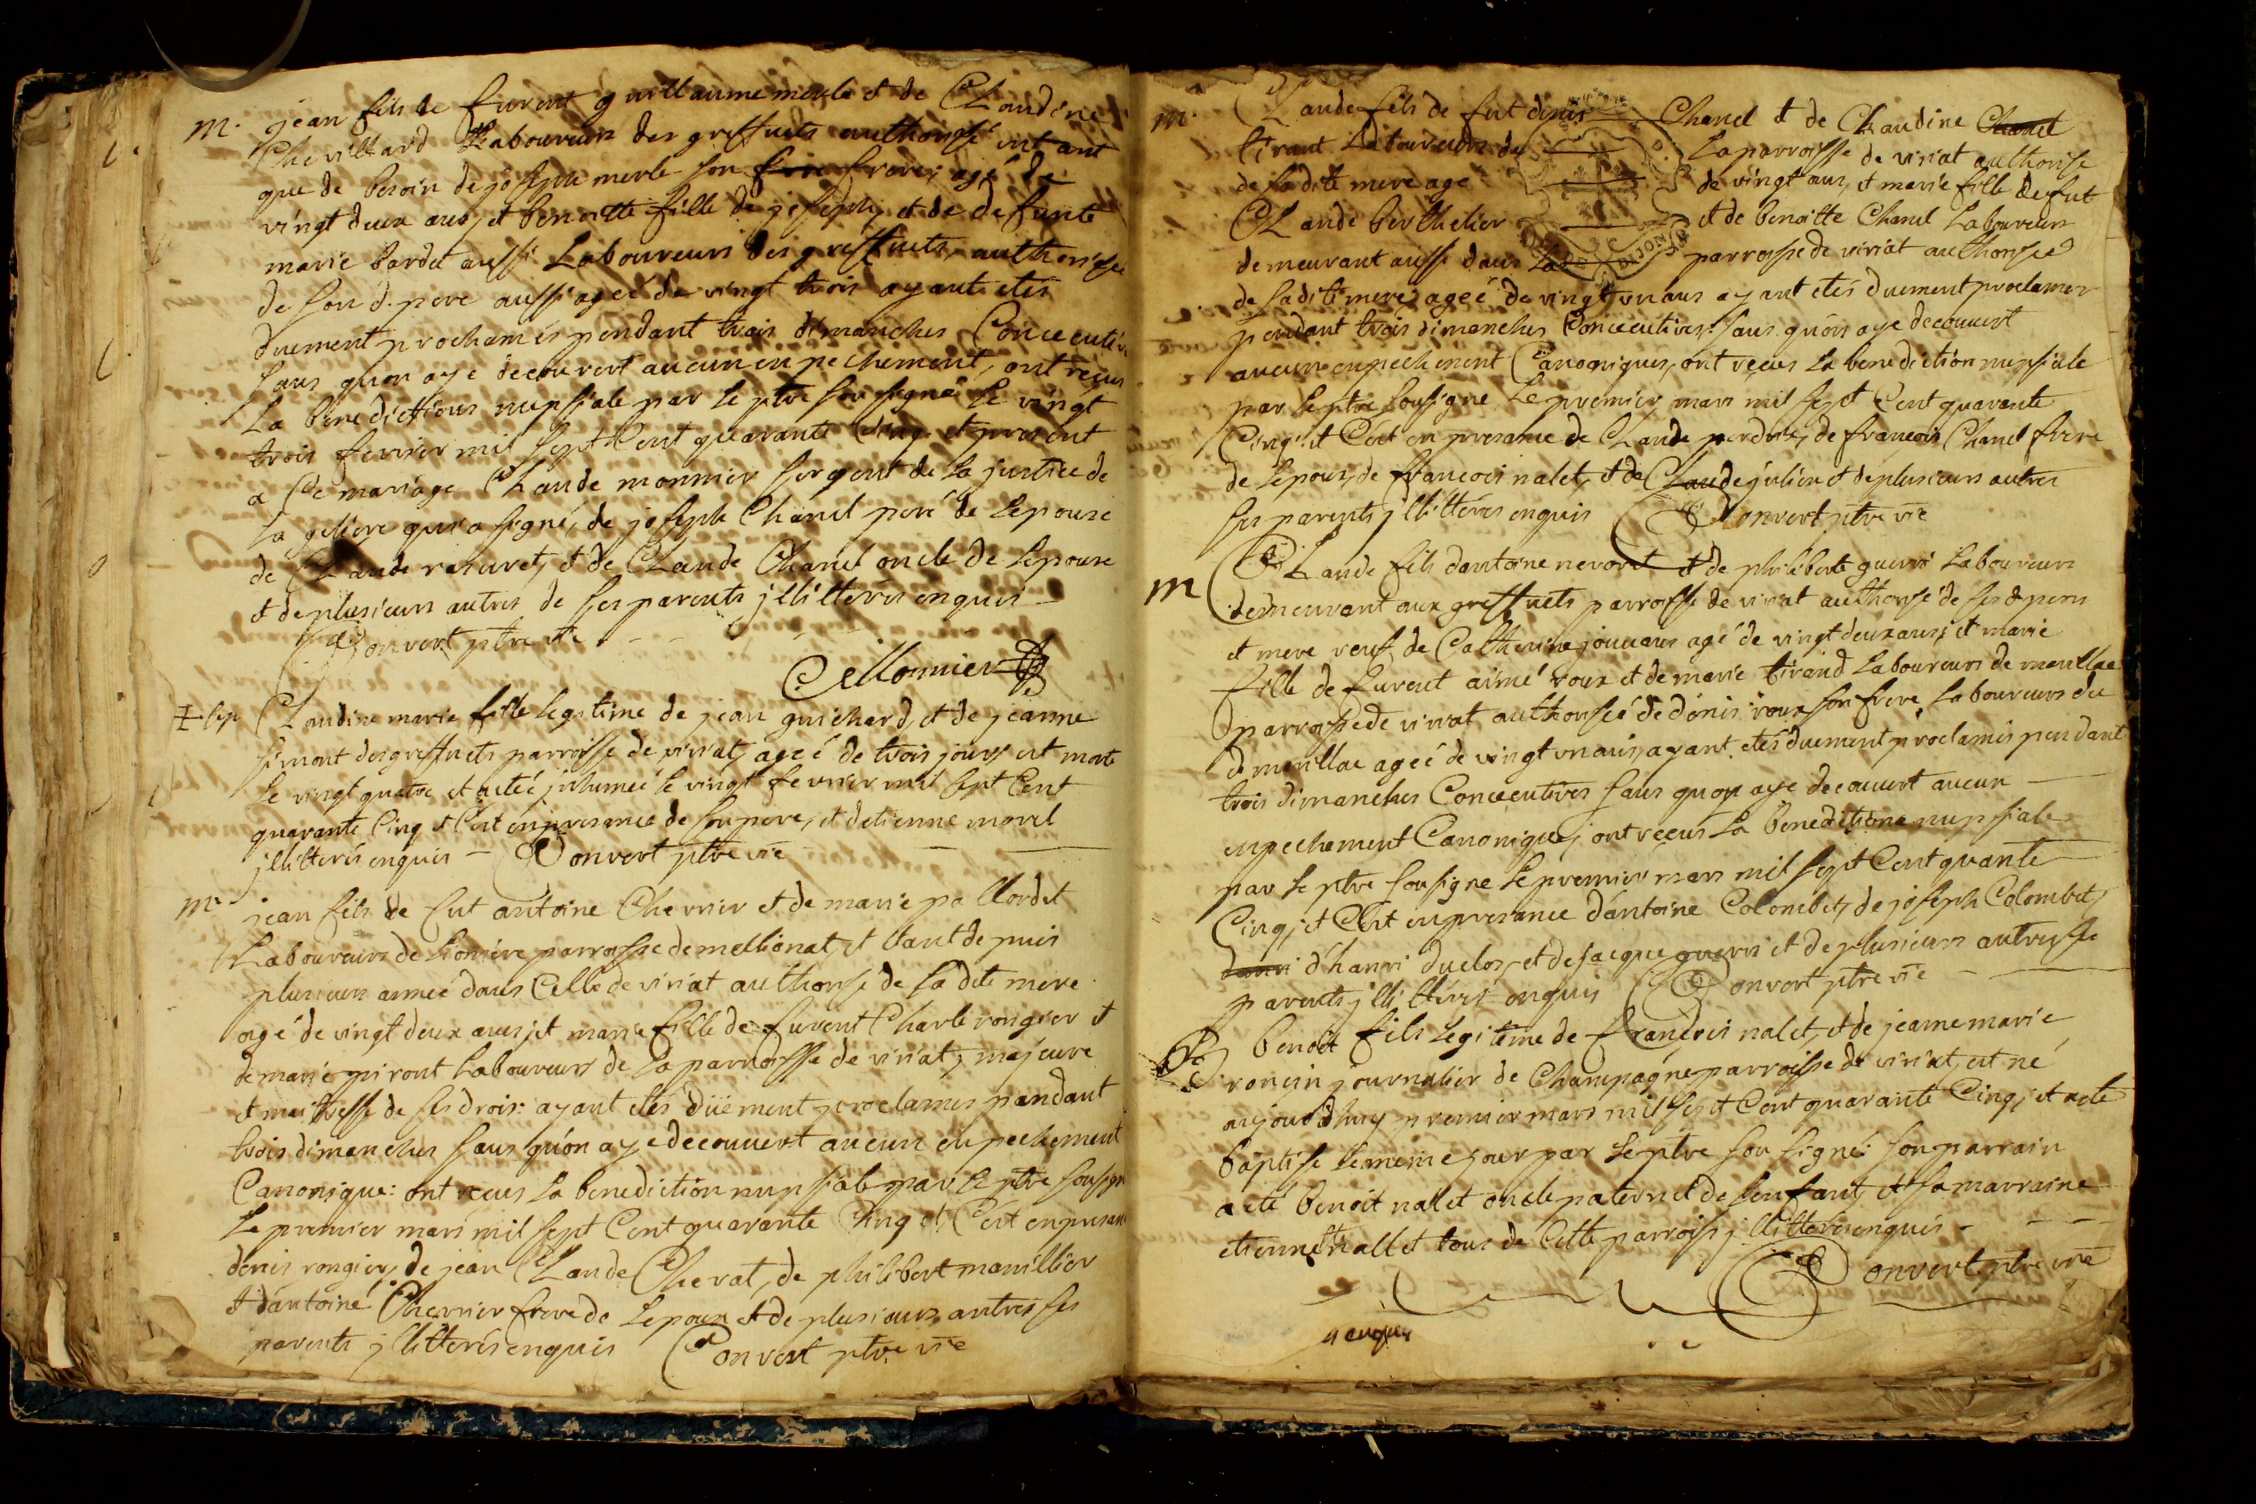 m. jean fils de furent guillaume merle et de Claudine
Chevillard Laboureurs des greffets authorisé entant
que de besoin de joseph merle son frere frere, agé de
vingt deux ans, et benoitte fille de joseph et de defunte
marie bardet aussi Laboureurs des greffets, authorisée
de son d. pere aussi ageé de vingt trois ayant etés
duement proclamés pendant trois dimanches Concecutiv
sans quon aye decouvert aucun enpechement, ont reçus
La benedictions nupsiale par le ptre sousigné Le vingt
trois fevrier mil sept Cent quarante Cinq et present
a Ce mariage Claude monnier sergent de la justice de
la geliere qui a signé, de joseph Chanel pere de Lepouse
de Claude et de Claude Chanel oncle de Lepouse
et de plusieurs autres de ses parents jllitterés enquis
Convert ptre vre
CMonnier
Claudine marie fille legitime de jean guichard, et de jeanne
simont des greffets parroisse de viriat, ageé de trois jours est morte
le vingt quatre et a eteé jnhumeé le vingt fevrier mil sept Cent
quarante Cinq et C'est enpresance de son pere, et detienne morel
jllitterés enquis – Convert ptre vre
m. jean fils de fut antoine Chevrier et de marie pallordet
Laboureurs de Lionnière parroisse de mellionat, et etant depuis
plusieurs anneé dans Celle de viriat authorisé de sa dite mere
agé de vingt deux ans, et marie fille de furent Charle rongier et
de marie piront Laboureurs de la parroisse de viriat, majeure
et maitresse de ses drois: ayant etés düement proclames pandant
trois dimanches sans qu'on aye decouvert aucun enpechement
Canonique: ont reçus la benediction nupsiale par le ptre sousign
Le premier mars mil sept Cent quarante Cinq et C'est enpresan
denis rongier, de jean Claude Chevat, de philibert manillier
et d'antoine Chevrier frere de Lepoux et de plusieurs autres ses
parents jllitterés enquis Convert ptre vre
m. Claude fils de fut denis Chanel et de Claudine Chanel
tirant Laboureurs de la parroisse de viriat authorise
de sadite mere age de vingt ans, et marie fille de fut
Claude berthelier et de benoitte Chanel Laboureurs
demeurant aussi dans lad parroisse de viriat authorisée
DIJON
de sadite mere, ageé de vingt un ans ayant etés duement proclamer
pendant trois dimanches Concecutives: sans qu'on aye decouvert
aucun enpechement Canoniques, ont reçus la benediction nupsiale
par le ptre sousigné Le premier mars mil sept Cent quarante
Cinq: et C'est en presance de Claude perdrix, de francois Chanel frere
de Lepoux, de francois nalet, et de Claude julien et de plusieurs autres
ses parents jllitterés enquis Convert ptre vre
m Claude fils dantoine nevoret et de philiberte guerri Laboureurs
demeurant aux greffets parroisse de viriat authorisé de ses d. pere
et mere veuf de Catherine jouvans agé de vingt deux ans; et marie
fille de furent aimé roux et de marie tirand Laboureurs de marillac
parroisse de viriat authorisée de dénis roux son frere Laboureurs du
d. marillac ageé de vingt un ans, ayant etés duement proclamés pendant
trois dimanches Concecutives sans qu'on aye decouvert aucun
enpechement Canonique, ont reçus la benedictione nupsiale
par le ptre sousigne Le premier mars mil sept Cent quarante
Cinq, et C'est enpresance d'antoine Colombet, de joseph Colombet,
d'hanri duclos, et de jacque guerri et de plusieurs autres ses
parents jllitterés enquis Convert ptre vre
B benoit fils Legitime de francois nalet, et de jeanne marie
roncin journalier de Champagne parroisse de viriat, est né
aujourdhuy premier mars mil sept Cent quarante Cinq, et a eté
baptisé le meme jour par le ptre sousigné: son parrain
a eté benoit nalet oncle paternel de Lenfant, et sa marraine
etiennette nallet tous de Cette parroisse jllitterés enquis
Convert ptre vre